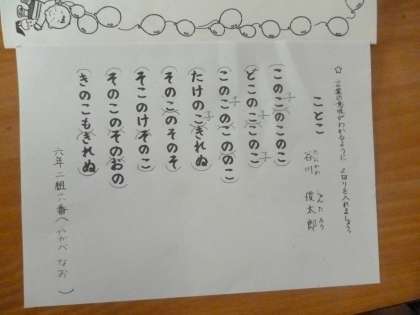 ☆ 言葉の意味がわかるように 区切りを入れましょう
ことこ
谷川 俊太郎
このこのこのこ
どこのこここのこ
このこのこののこ
たけのこきれぬ
そのこのそのそ
そこのけそのこ
そのこのそのおの
きのこもきれぬ
六年 二組 六番